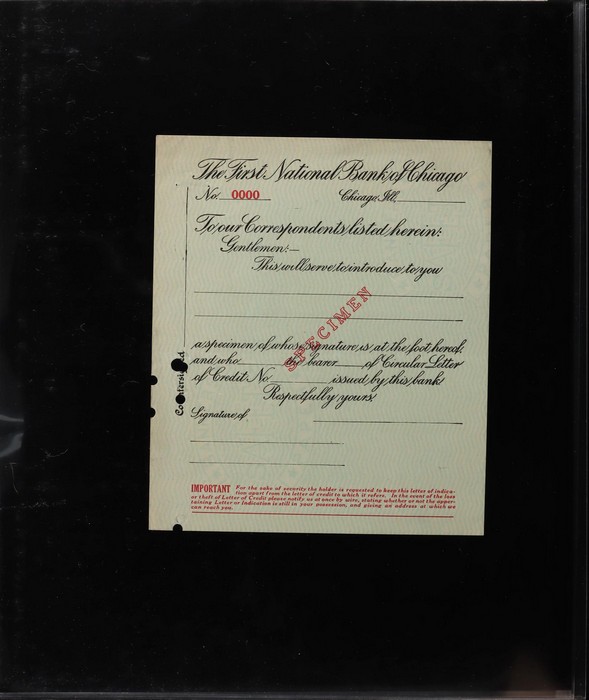 The First National Bank of Chicago
No. 0000 Chicago, Ill.
To our Correspondents listed herein:
Gentlemen:—
This will serve to introduce to you
SPECIMEN
a specimen of whose signature is at the foot hereof,
and who the bearer of Circular Letter
of Credit No. issued by this bank
Respectfully yours
Countersigned
Signature of
IMPORTANT For the sake of security the holder is requested to keep this letter of indica-
tion apart from the letter of credit to which it refers. In the event of the loss
or theft of Letter of Credit please notify us at once by wire, stating whether or not the apper-
taining Letter or Indication is still in your possession, and giving an address at which we
can reach you.